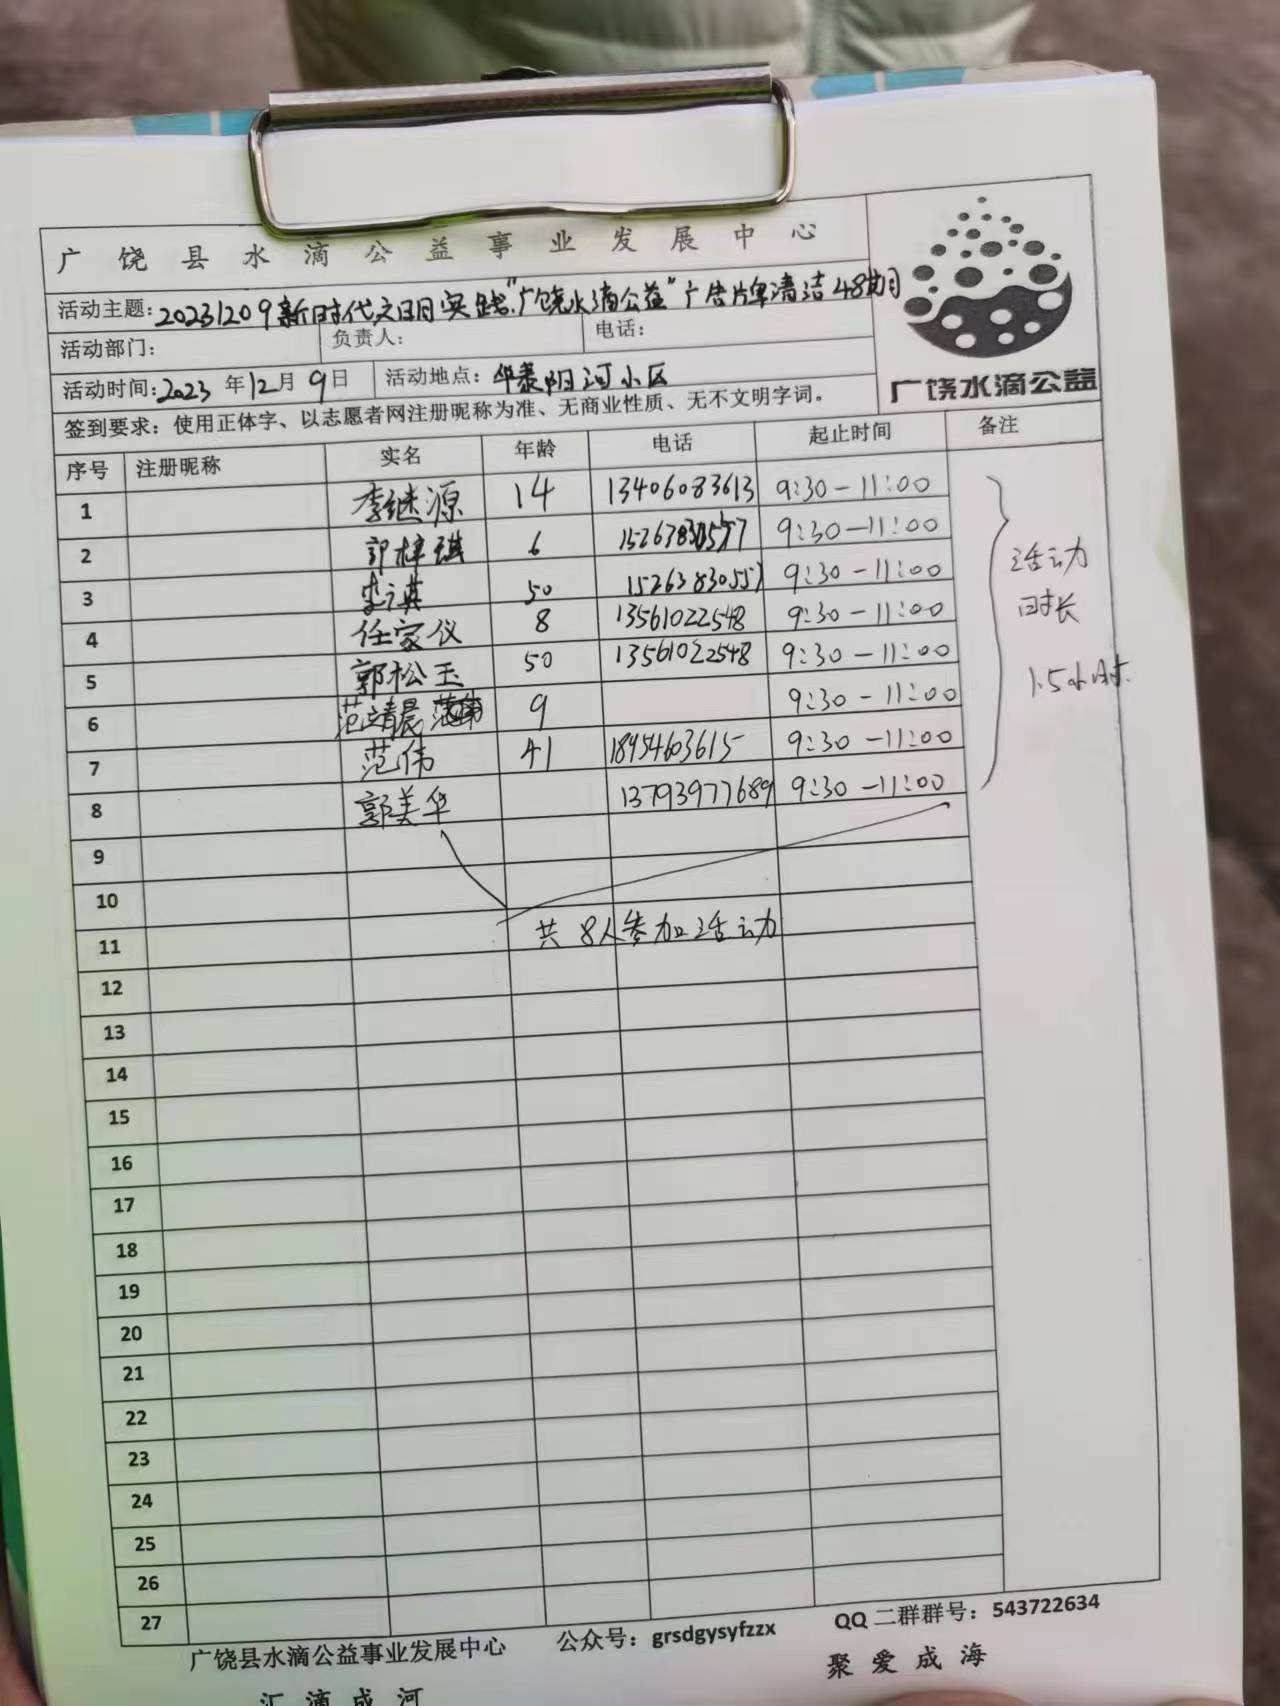 广饶县水滴公益事业发展中心
活动主题：20231209新时代文明实践"广饶水滴公益"广告牌清洁48期
活动部门： 负责人： 电话：
活动时间：2023年12月9日 活动地点：华泰阳河小区
广饶水滴公益
签到要求：使用正体字、以志愿者网注册昵称为准、无商业性质、无不文明字词。
序号 注册昵称 实名 年龄 电话 起止时间 备注
1 李继源 14 13406083613 9:30-11:00
2 郭梓琪 6 9:30-11:00
3 50 15263830557 9:30-11:00
4 任家仪 8 13561022548 9:30-11:00
5 郭松玉 50 13561022548 9:30-11:00
6 范靖晨 9 9:30-11:00
7 范伟 41 18954603615 9:30-11:00
8 郭美华 13793977689 9:30-11:00
活动
时长
1.5小时
9
10
共8人参加活动
11
12
13
14
15
16
17
18
19
20
21
22
23
24
25
26
27
广饶县水滴公益事业发展中心 公众号：grsdgysyfzzx QQ二群群号：543722634
汇滴成河 聚爱成海